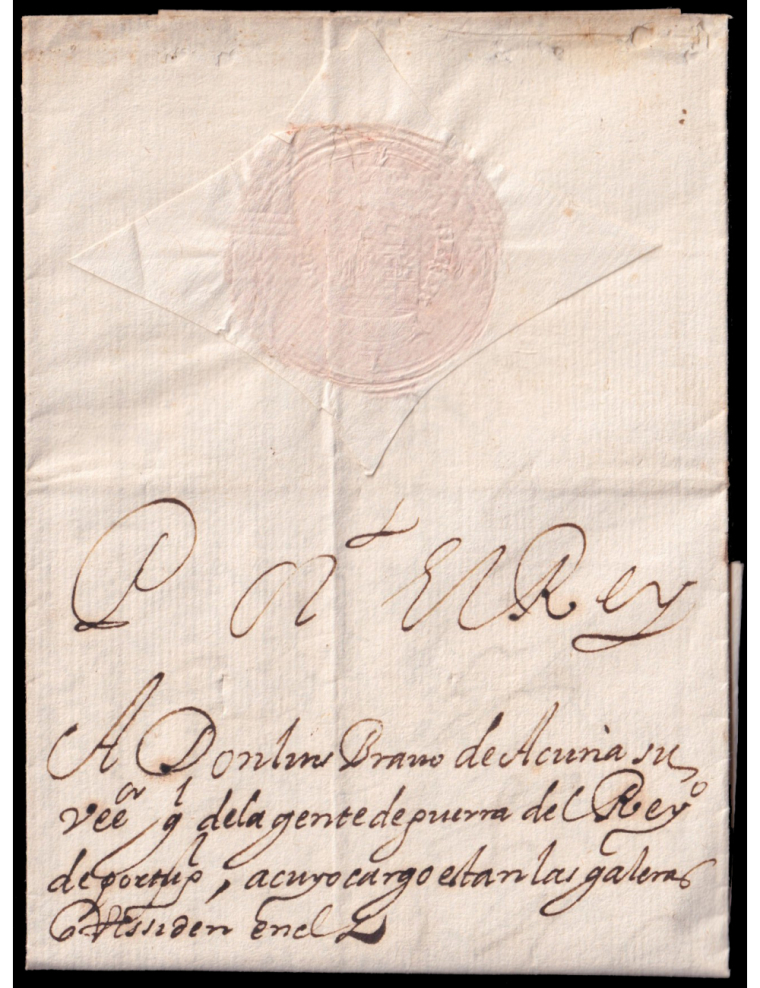 Por el Rey
A Don luis Brauo de Acuña su
veeor gl dela gente de guerra del Reyo
de portugl, a cuyo cargo estan las galeras
q Ressiden en el